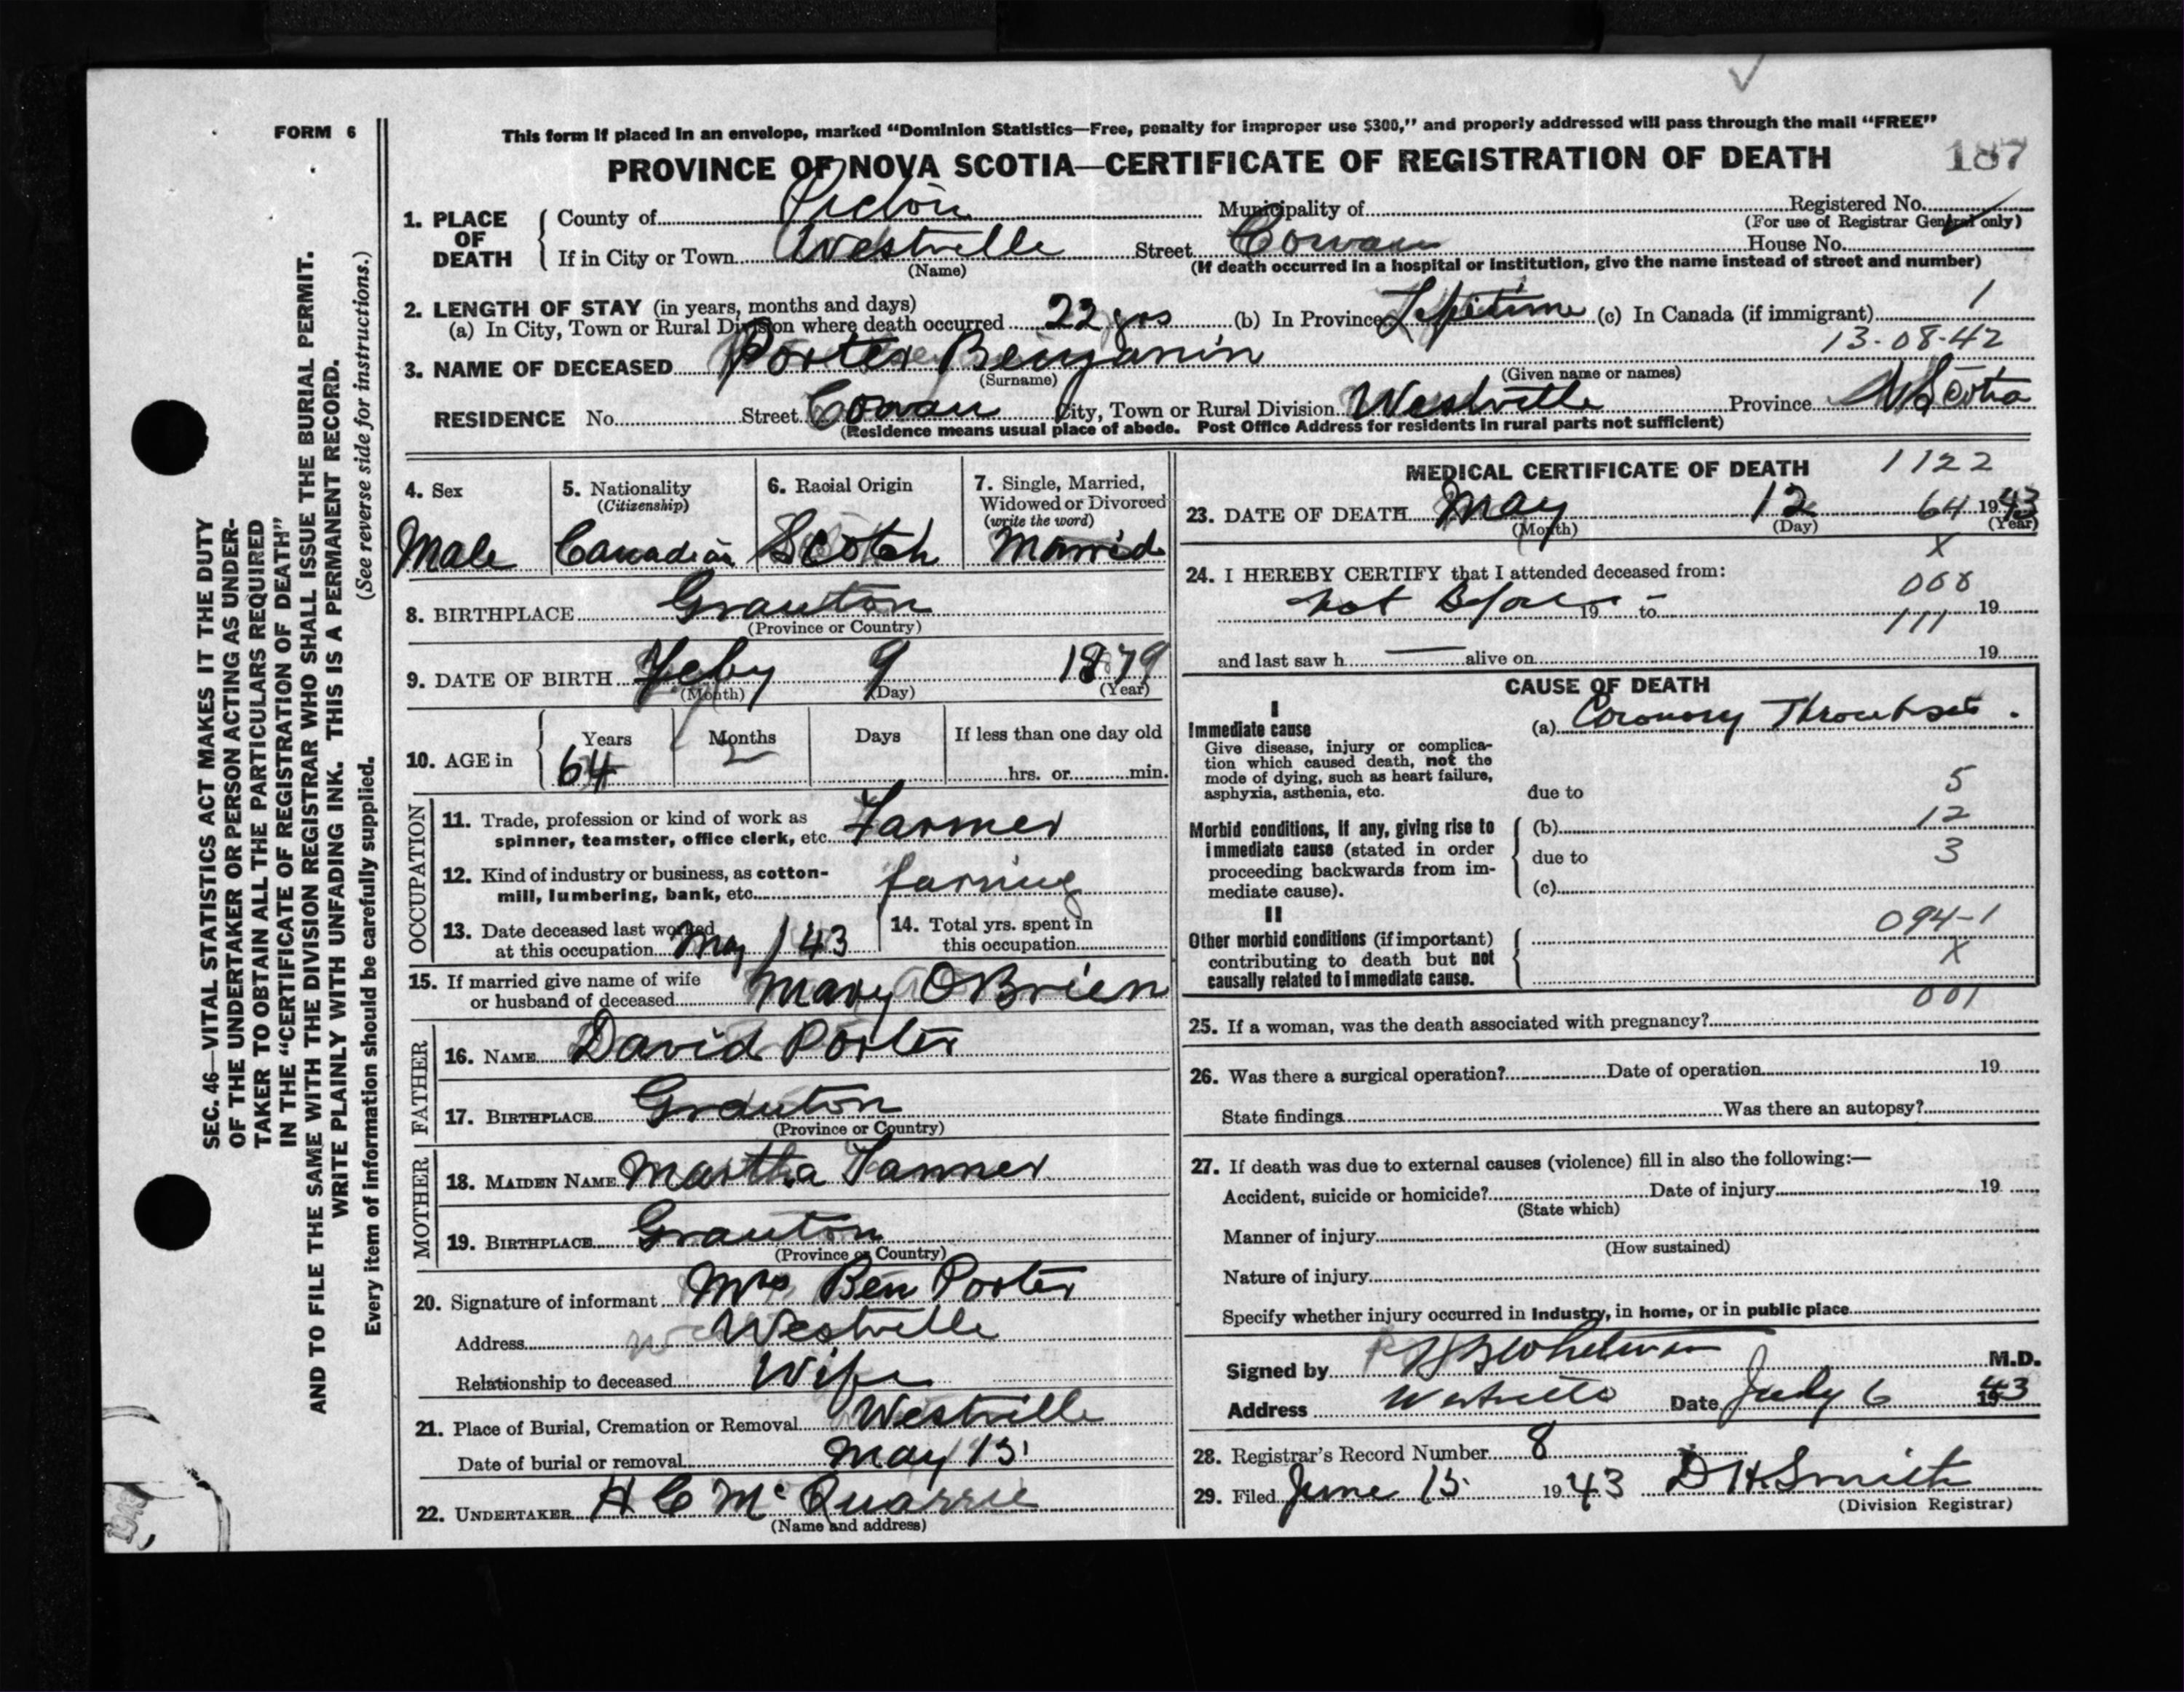 FORM 6
This form if placed in an envelope, marked “Dominion Statistics—Free, penalty for improper use $300,” and properly addressed will pass through the mail “FREE”
PROVINCE OF NOVA SCOTIA—CERTIFICATE OF REGISTRATION OF DEATH 187
1. PLACE OF DEATH County of Pictou Municipality of Registered No.
(For use of Registrar General only)
If in City or Town Westville Street Cowan House No.
(Name) (If death occurred in a hospital or institution, give the name instead of street and number)
2. LENGTH OF STAY (in years, months and days)
(a) In City, Town or Rural Division where death occurred 22 yrs (b) In Province Lifetime (c) In Canada (if immigrant) 1
13-08-42
3. NAME OF DECEASED Porter Benjamin
(Surname) (Given name or names)
RESIDENCE No. Street Cowan City, Town or Rural Division Westville Province N Scotia
(Residence means usual place of abode. Post Office Address for residents in rural parts not sufficient)
SEC. 46—VITAL STATISTICS ACT MAKES IT THE DUTY
OF THE UNDERTAKER OR PERSON ACTING AS UNDER-
TAKER TO OBTAIN ALL THE PARTICULARS REQUIRED
IN THE “CERTIFICATE OF REGISTRATION OF DEATH”
AND TO FILE THE SAME WITH THE DIVISION REGISTRAR WHO SHALL ISSUE THE BURIAL PERMIT.
WRITE PLAINLY WITH UNFADING INK. THIS IS A PERMANENT RECORD.
Every item of information should be carefully supplied. (See reverse side for instructions.)
4. Sex 5. Nationality 6. Racial Origin 7. Single, Married,
(Citizenship) Widowed or Divorced
(write the word)
Male Canadian Scotch Married
8. BIRTHPLACE Granton
(Province or Country)
9. DATE OF BIRTH Feby 9 1879
(Month) (Day) (Year)
10. AGE in Years Months Days If less than one day old
64 2 hrs. or min.
OCCUPATION
11. Trade, profession or kind of work as
spinner, teamster, office clerk, etc. Farmer
12. Kind of industry or business, as cotton-
mill, lumbering, bank, etc. farming
13. Date deceased last worked
at this occupation May 1 43
14. Total yrs. spent in
this occupation
15. If married give name of wife
or husband of deceased Mary OBrien
FATHER
16. NAME David Porter
17. BIRTHPLACE Granton
(Province or Country)
MOTHER
18. MAIDEN NAME Martha Tanner
19. BIRTHPLACE Granton
(Province or Country)
20. Signature of informant Mrs Ben Porter
Address Westville
Relationship to deceased Wife
21. Place of Burial, Cremation or Removal Westville
Date of burial or removal May 15
22. UNDERTAKER H C McQuarrie
(Name and address)
MEDICAL CERTIFICATE OF DEATH 1122
23. DATE OF DEATH May 12 64 1943
(Month) (Day) (Year)
X
24. I HEREBY CERTIFY that I attended deceased from:
not Before 19 to 19
111
and last saw h alive on 19
CAUSE OF DEATH
I
Immediate cause (a) Coronary Thrombosis.
Give disease, injury or complica-
tion which caused death, not the
mode of dying, such as heart failure,
asphyxia, asthenia, etc. due to 5
Morbid conditions, if any, giving rise to (b) 12
immediate cause (stated in order due to 3
proceeding backwards from im-
mediate cause). (c)
II 094-1
Other morbid conditions (if important)
contributing to death but not X
causally related to immediate cause.
001
25. If a woman, was the death associated with pregnancy?
26. Was there a surgical operation? Date of operation 19
State findings Was there an autopsy?
27. If death was due to external causes (violence) fill in also the following:—
Accident, suicide or homicide? Date of injury 19
(State which)
Manner of injury
(How sustained)
Nature of injury
Specify whether injury occurred in Industry, in home, or in public place
Signed by M.D.
Address Westville Date July 6 1943
28. Registrar's Record Number 8
29. Filed June 15 1943 D H Smith
(Division Registrar)